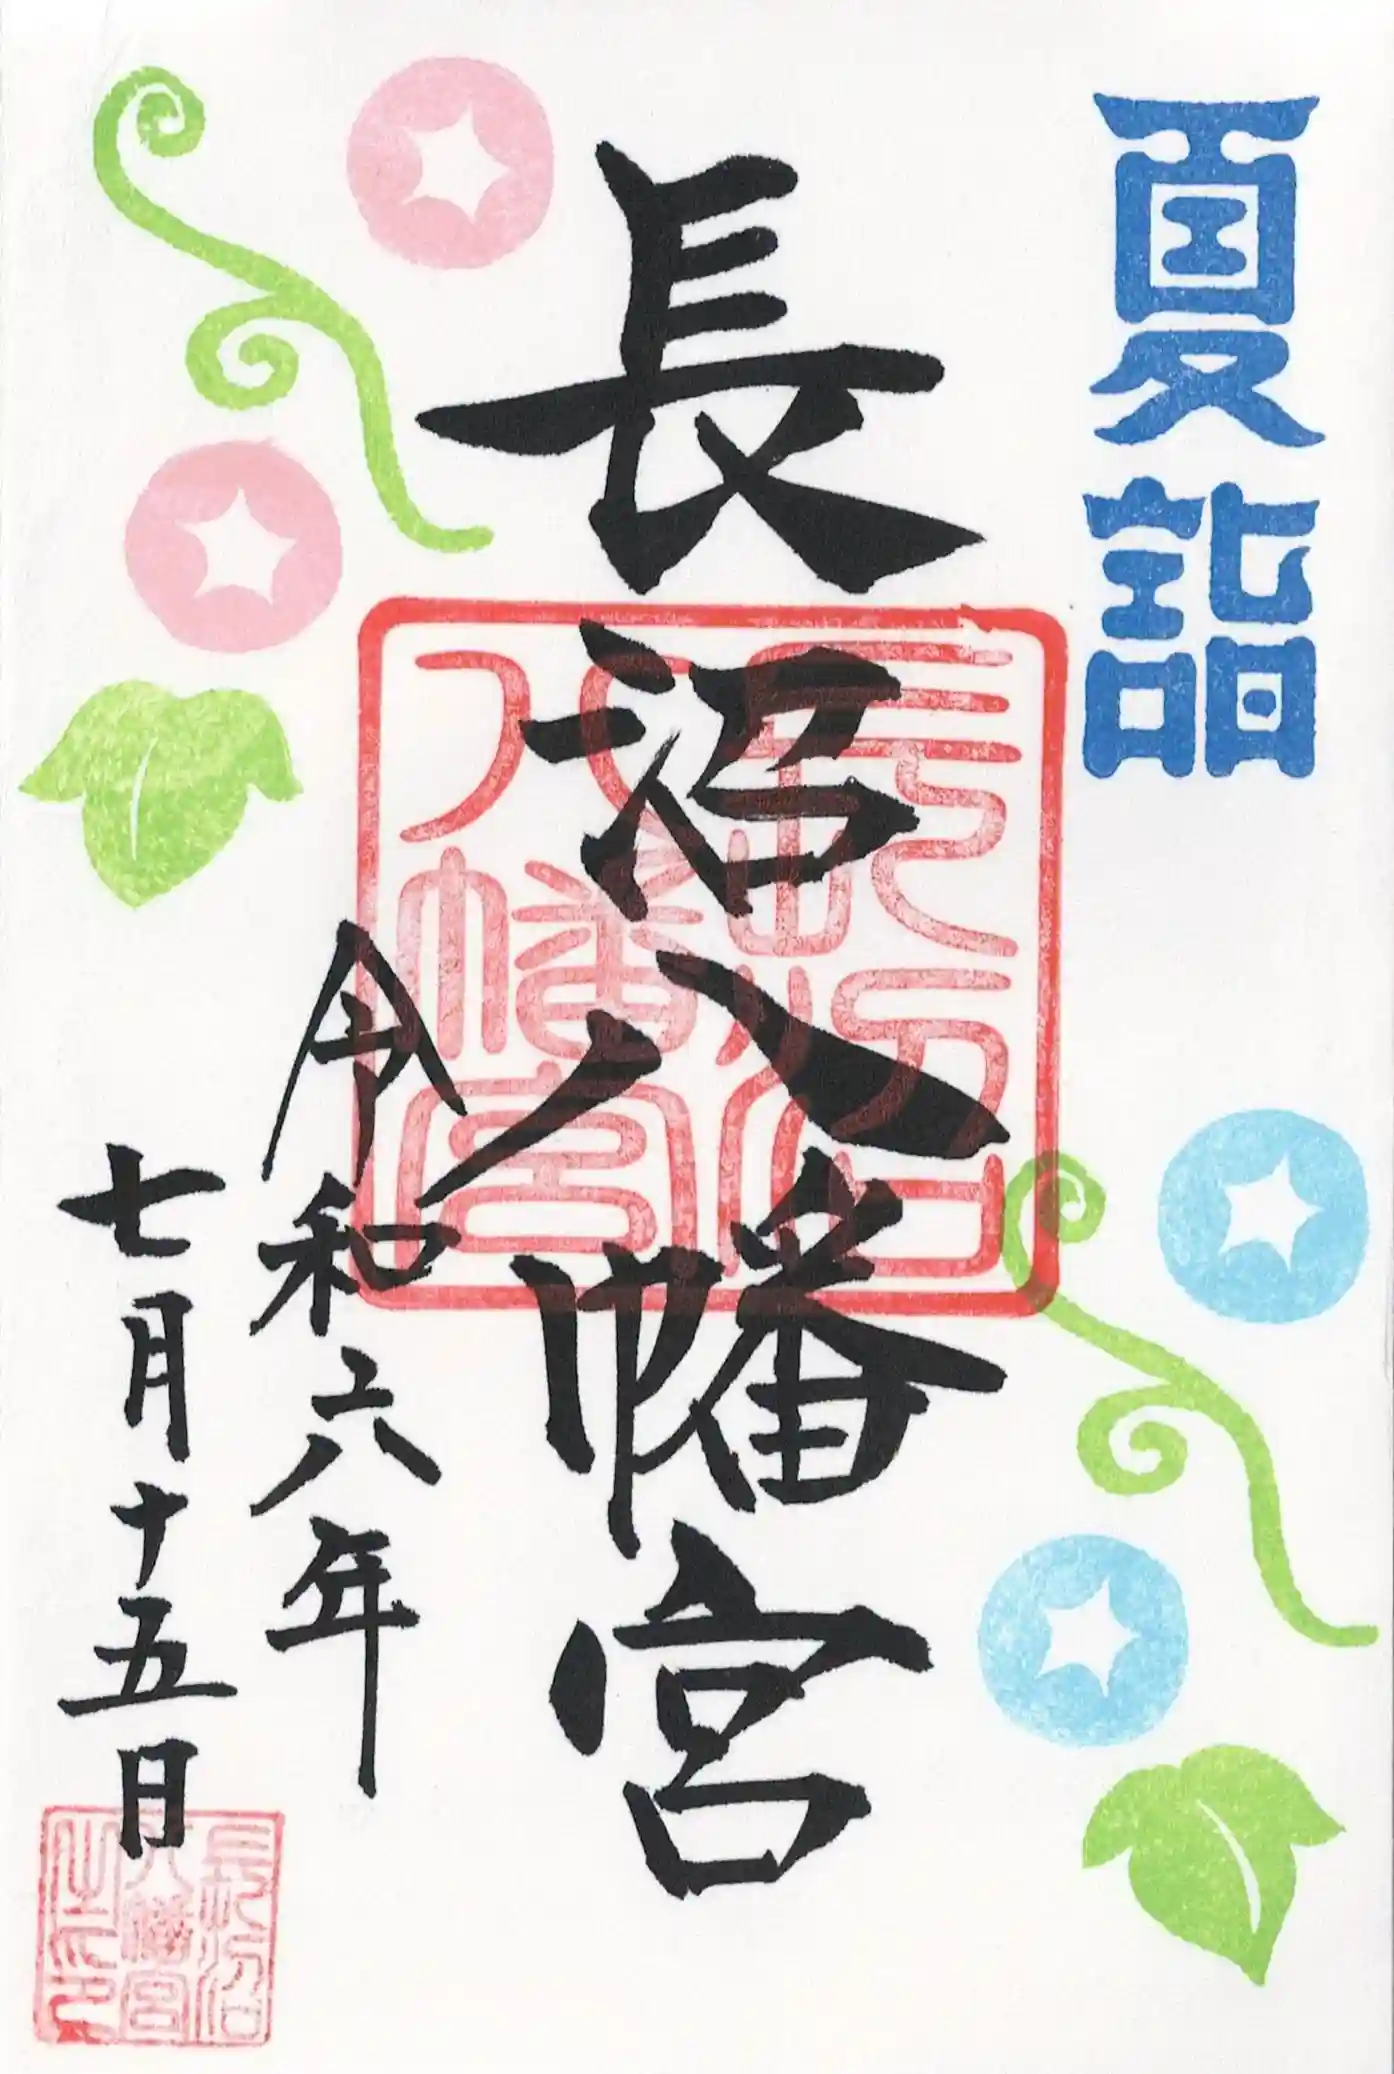 夏詣
長沼八幡宮
令和六年
七月十五日
長沼
八幡宮
長沼
八幡宮
之印